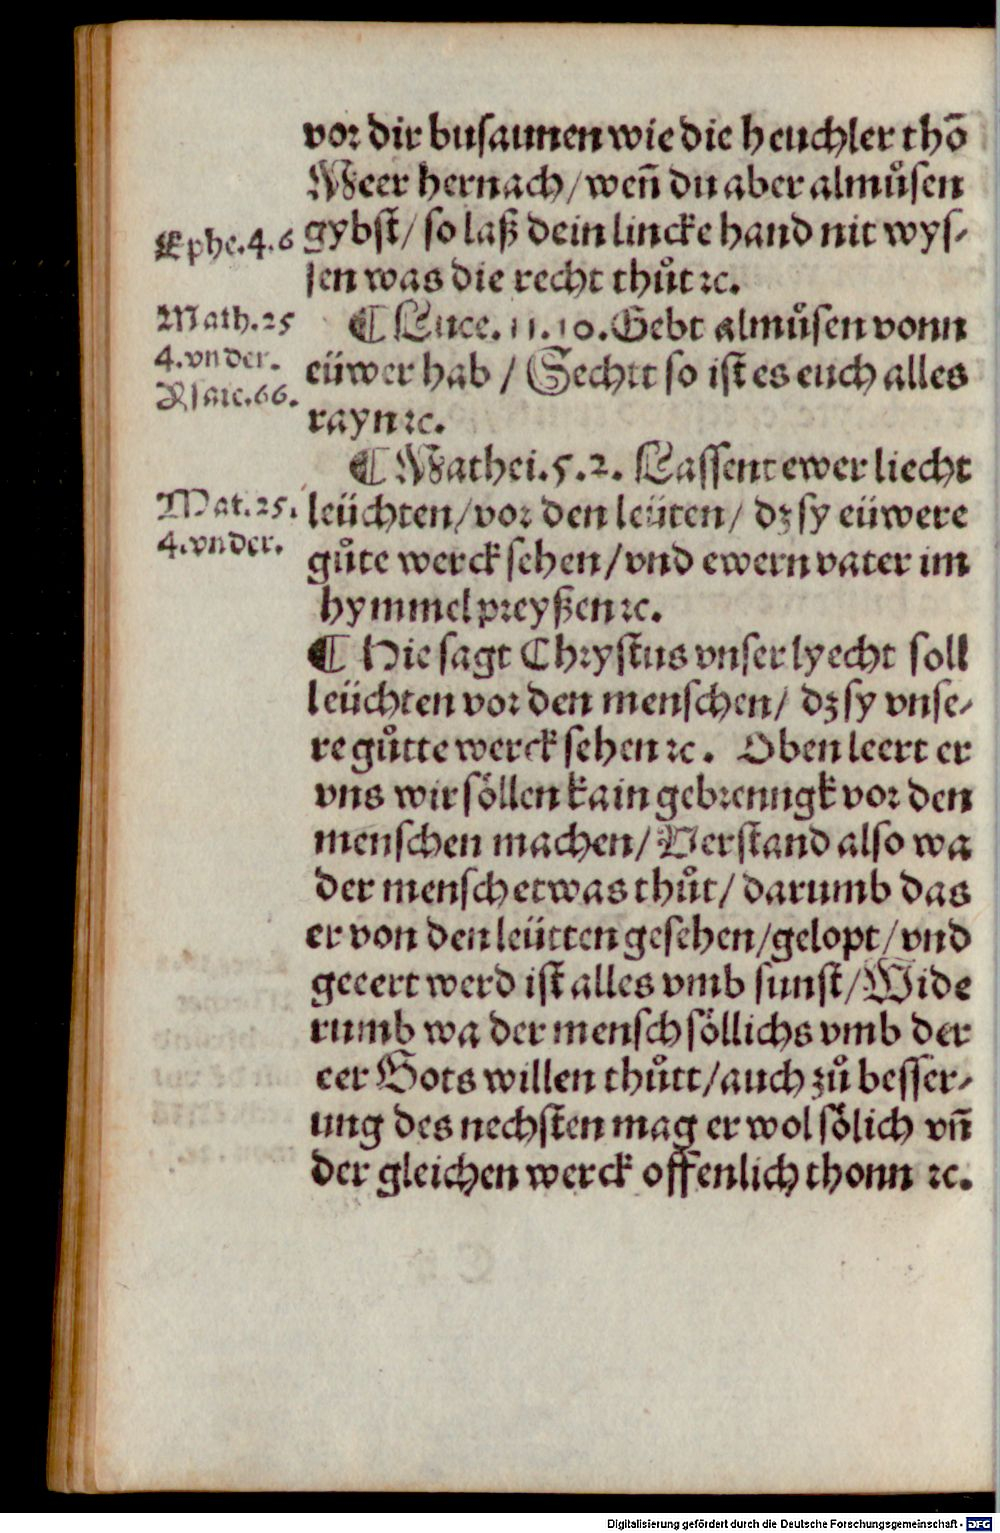 vor dir busaunen wie die heuchler thō
Meer hernach/ weñ du aber almůsen
Ephe.4.6
gybst/ so laß dein lincke hand nit wys-
sen was die recht thůt ꝛc.
Math.25
4.vnder.
Esaie.66.
¶ Luce. 11.10. Gebt almůsen vonn
eüwer hab / Sechtt so ist es euch alles
rayn ꝛc.
¶ Mathei.5.2. Lassent ewer liecht
Mat.25.
4.vnder.
leüchten/ vor den leüten/ dz sy eüwere
gůte werck sehen/ vnd ewern vater im
hymmel preyßen ꝛc.
¶ Hie sagt Chrystus vnser lyecht soll
leüchten vor den menschen/ dz sy vnse-
re gůtte werck sehen ꝛc. Oben leert er
vns wir söllen kain gebrenngk vor den
menschen machen/ Verstand also wa
der mensch etwas thůt/ darumb das
er von den leütten gesehen/gelopt/vnd
geeert werd ist alles vmb sunst/Wide
rumb wa der mensch söllichs vmb der
eer Gots willen thůtt/auch zů besser-
ung des nechsten mag er wol sölich vñ
der gleichen werck offenlich thonn ꝛc.
Digitalisierung gefördert durch die Deutsche Forschungsgemeinschaft - DFG